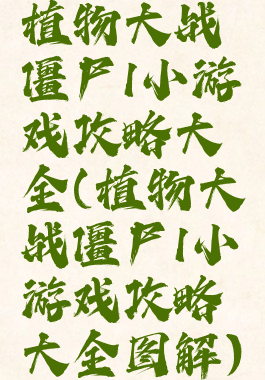 植物大战
僵尸1小游
戏攻略大
全(植物大
战僵尸1小
游戏攻略
大全图解)